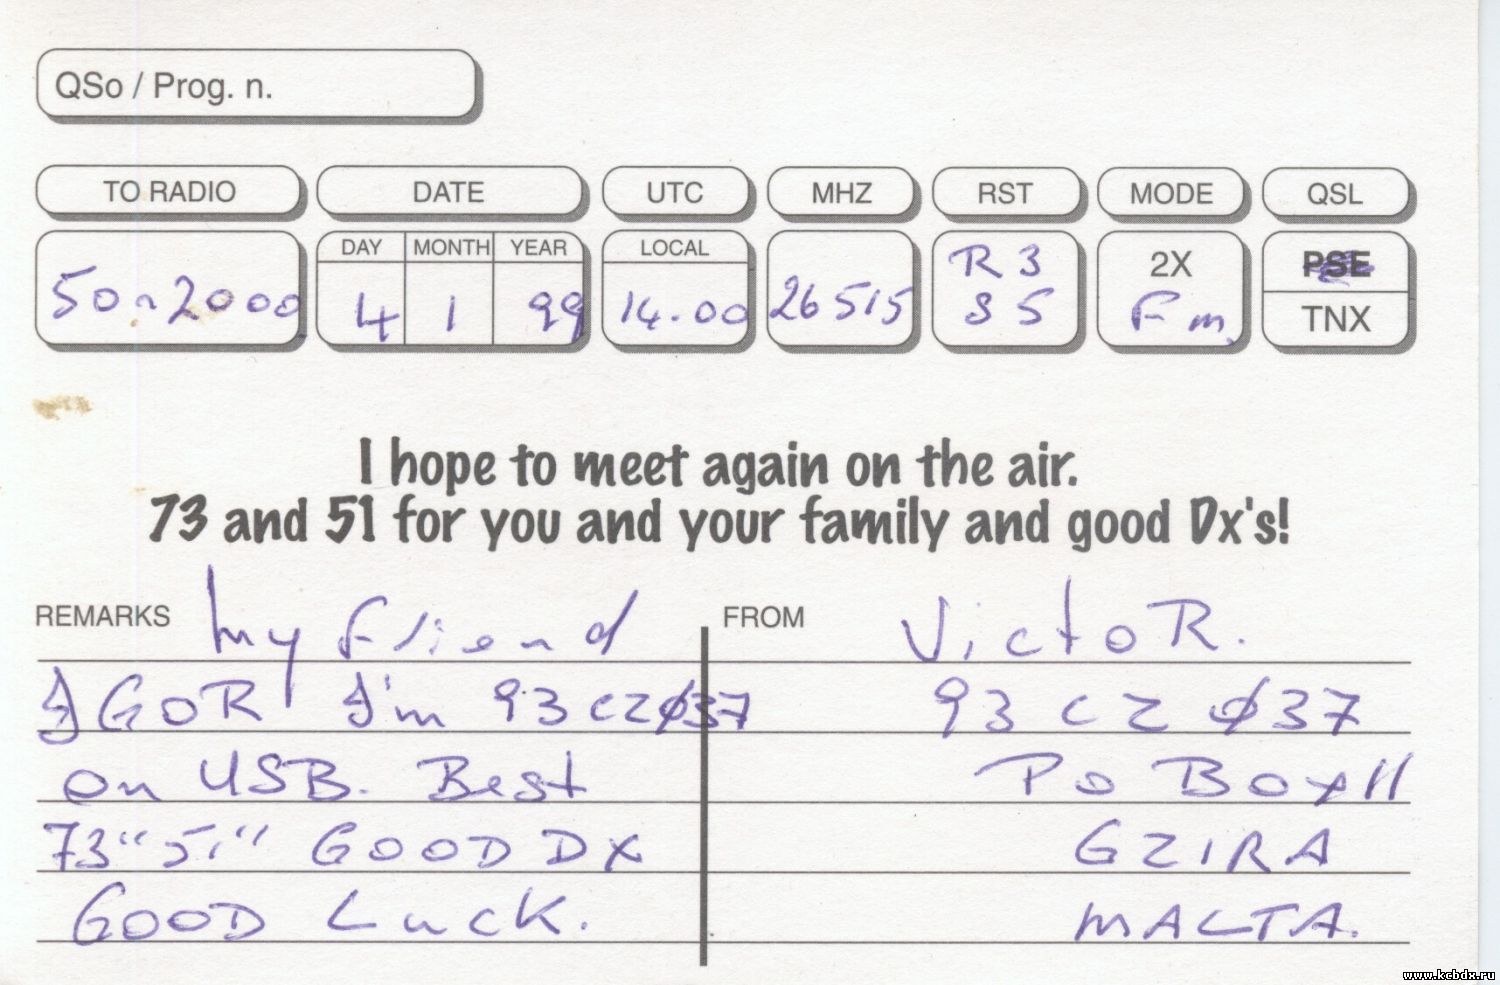 QSo / Prog. n.
TO RADIO DATE UTC MHZ RST MODE QSL
DAY MONTH YEAR LOCAL R 3 2X PSE
50n2000 4 1 99 14.00 26515 S 5 Fm. TNX
I hope to meet again on the air.
73 and 51 for you and your family and good Dx's!
REMARKS my Friend FROM VictoR.
IGOR I'm 93 CZØ37 93 CZ Ø37
on USB. Best Po Box 11
73 "51" GOOD DX GZIRA
GOOD Luck. MALTA.
www.kcbdx.ru